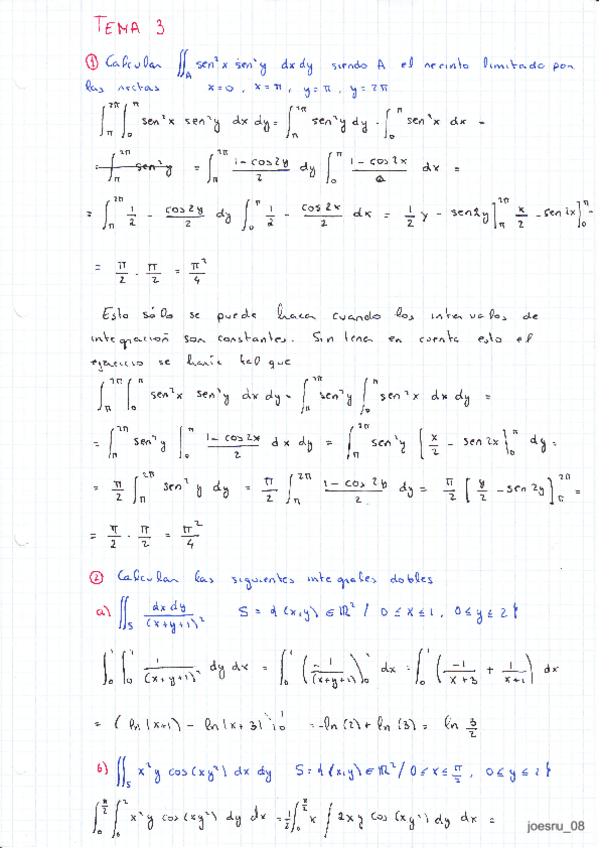 TEMA 3
① Calcular ∬_A sen²x sen²y dx dy siendo A el recinto limitado por
las rectas x=0, x=π, y=π, y=2π
∫_π^{2π} ∫_0^π sen²x sen²y dx dy = ∫_π^{2π} sen²y dy · ∫_0^π sen²x dx =
= ∫_π^{2π} sen²y = ∫_π^{2π} (1-cos2y)/2 dy ∫_0^π (1-cos2x)/2 dx =
= ∫_π^{2π} 1/2 - cos2y/2 dy ∫_0^π 1/2 - cos2x/2 dx = 1/2 y - sen2y]_π^{2π} x/2 - sen2x]_0^π =
= π/2 · π/2 = π²/4
Esto sólo se puede hacer cuando los intervalos de
integración son constantes. Sin tener en cuenta esto el
ejercicio se haría tal que
∫_π^{2π} ∫_0^π sen²x sen²y dx dy = ∫_π^{2π} sen²y ∫_0^π sen²x dx dy =
= ∫_π^{2π} sen²y ∫_0^π (1-cos2x)/2 dx dy = ∫_π^{2π} sen²y [x/2 - sen2x]_0^π dy =
= π/2 ∫_π^{2π} sen²y dy = π/2 ∫_π^{2π} (1-cos2y)/2 dy = π/2 [y/2 - sen2y]_π^{2π} =
= π/2 · π/2 = π²/4
② Calcular las siguientes integrales dobles
a) ∬_S dxdy/(x+y+1)² S = {(x,y) ∈ ℝ² / 0≤x≤1, 0≤y≤2}
∫_0^1 ∫_0^1 1/(x+y+1)² dy dx = ∫_0^1 (-1/(x+y+1))_0 dx = ∫_0^1 (-1/(x+3) + 1/(x+1)) dx
= (ln|x+1| - ln|x+3|)_0^1 = -ln(2) + ln(3) = ln 3/2
b) ∬_S x²y cos(xy²) dx dy S = {(x,y) ∈ ℝ² / 0≤x≤π/2, 0≤y≤2}
∫_0^{π/2} ∫_0^2 x²y cos(xy²) dy dx = 1/2 ∫_0^{π/2} x ∫ 2xy cos(xy²) dy dx =
joesru_08